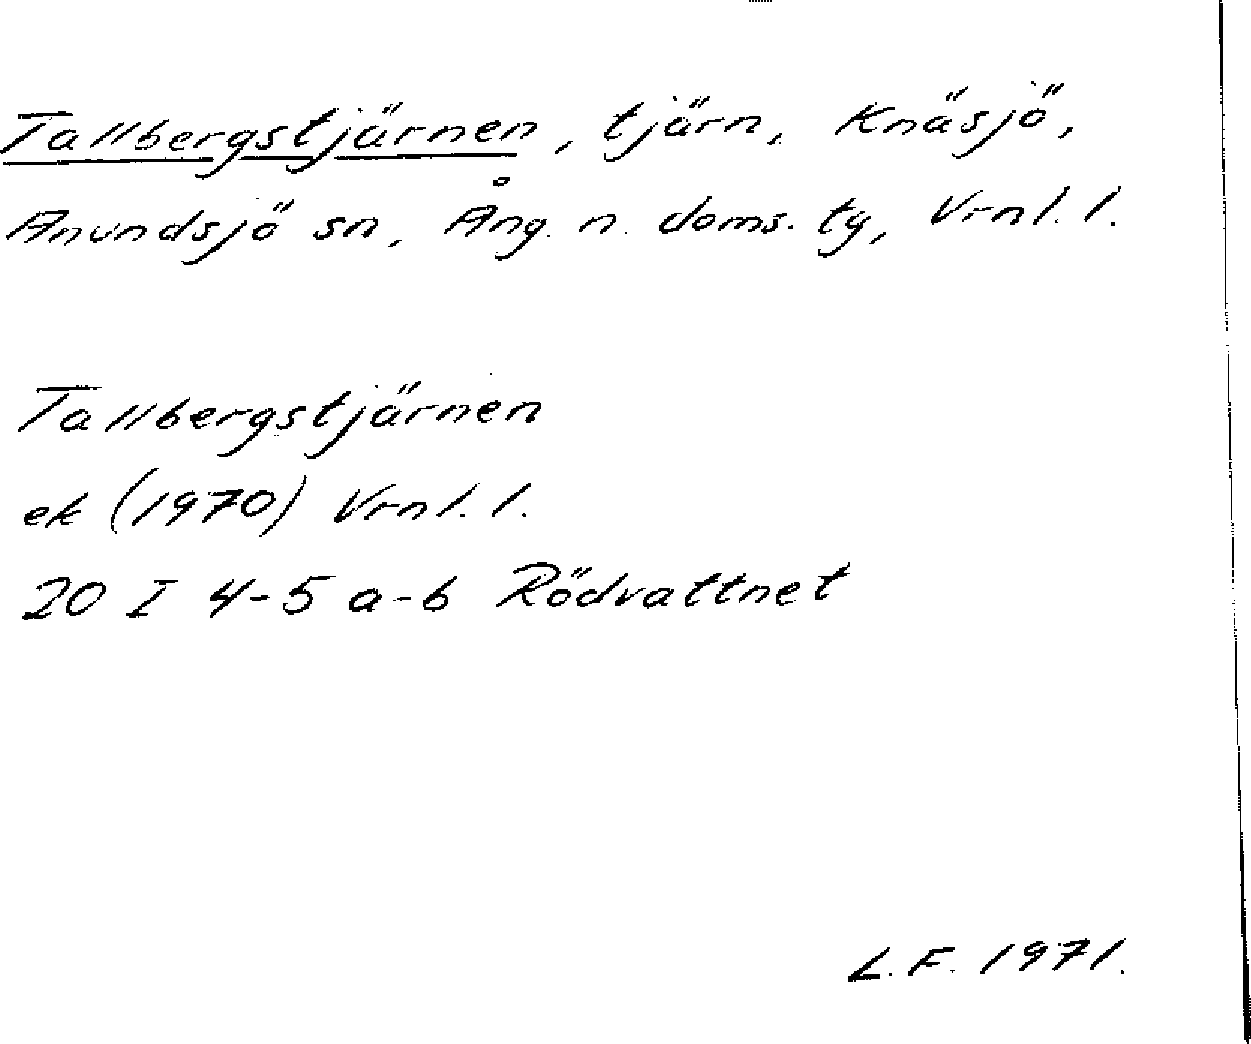 Tallbergstjärnen, tjärn, Knäsjö,
Anundsjö sn, Ång. n. doms. ty, Vrnl. l.
Tallbergstjärnen
ek (1970) Vrnl. l.
20 I 4-5 a-b Rödvattnet
L.F. 1971.